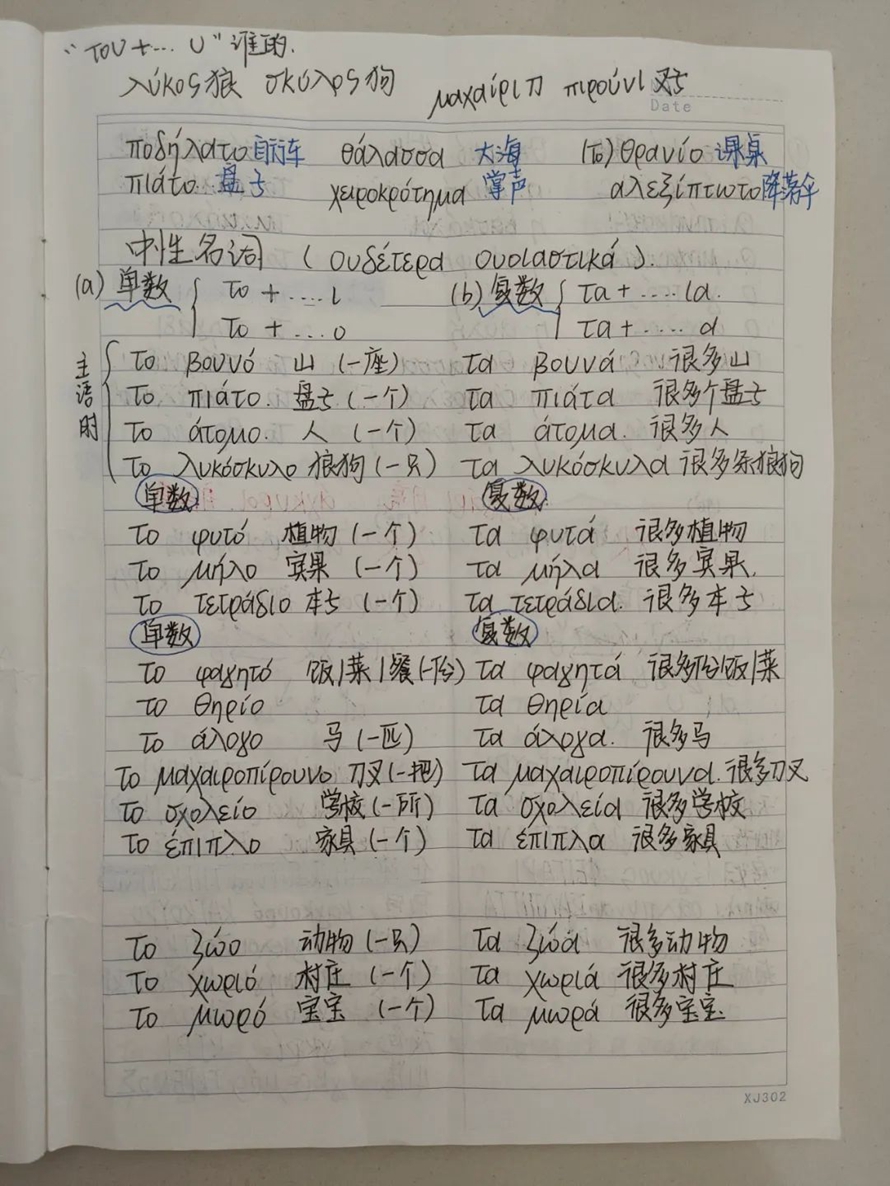 “του + ... υ” 谁的.
λύκος 狼 σκύλος 狗 μαχαίρι 刀 πιρούνι 叉
Date
ποδήλατο 自行车 θάλασσα 大海 (το) θρανίο 课桌
πιάτο 盘子 χειροκρότημα 掌声 αλεξίπτωτο 降落伞
中性名词 ( ουδέτερα ουσιαστικά ).
(a) 单数 { το + .... ι (b) 复数 { τα + .... ια.
το + ... ο τα + .... α
主语时 { το βουνό 山 (一座) τα βουνά 很多山
το πιάτο. 盘子 (一个) τα πιάτα 很多个盘子
το άτομο. 人 (一个) τα άτομα. 很多人
το λυκόσκυλο 狼狗 (一只) τα λυκόσκυλα 很多条狼狗
单数 复数
το φυτό 植物 (一个) τα φυτά 很多植物
το μήλο 实果 (一个) τα μήλα 很多实果.
το τετράδιο 本子 (一个) τα τετράδια. 很多本子
单数 复数
το φαγητό 饭/菜/餐 (一份) τα φαγητά 很多份饭/菜
το θηρίο τα θηρία
το άλογο 马 (一匹) τα άλογα. 很多马
το μαχαιροπίρουνο 刀叉 (一把) τα μαχαιροπίρουνα. 很多刀叉
το σχολείο 学校 (一所) τα σχολεία 很多学校
το έπιπλο 家具 (一个) τα έπιπλα 很多家具
το ζώο 动物 (一只) τα ζώα 很多动物
το χωριό 村庄 (一个) τα χωριά 很多村庄
το μωρό 宝宝 (一个) τα μωρά 很多宝宝.
XJ302